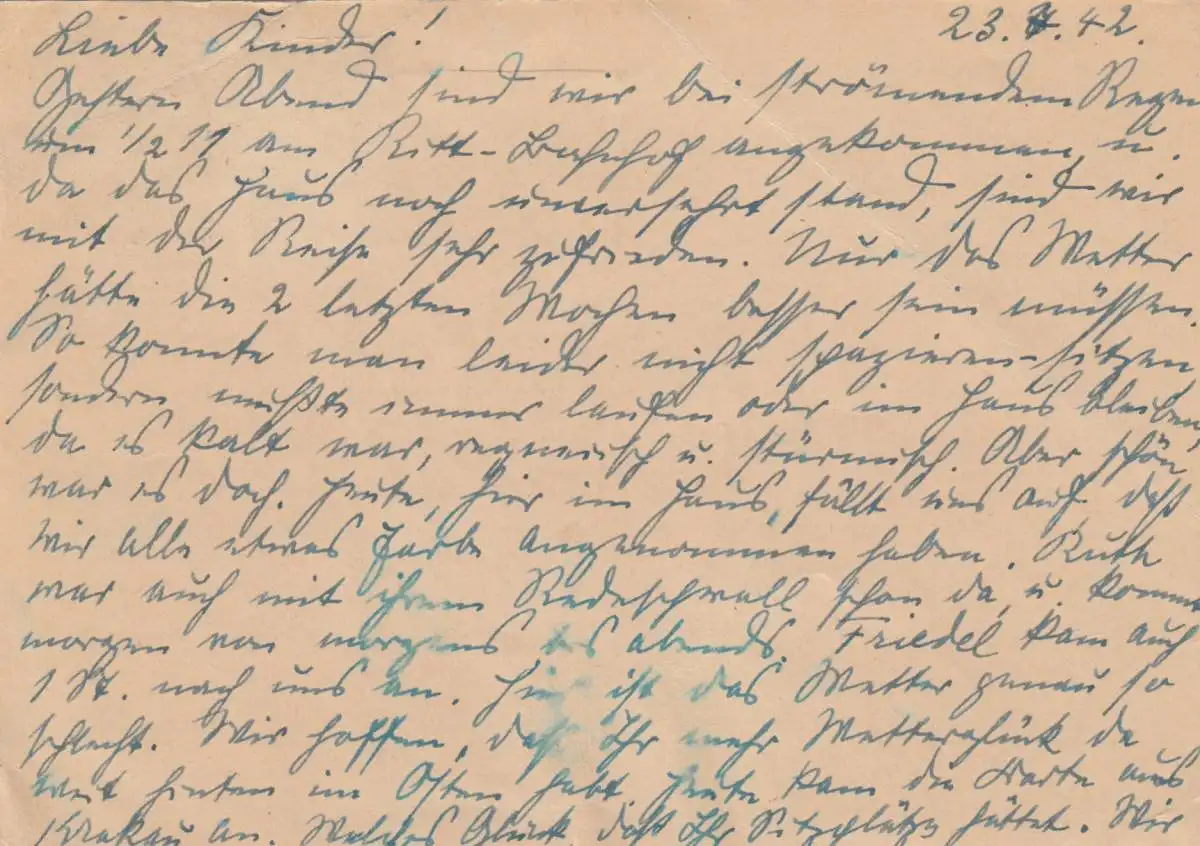 Liebe Kinder! 23.7.42.
Gestern Abend sind wir bei strömendem Regen
um 1/2 11 am Ritt-Bahnhof angekommen u.
da das Haus noch unversehrt stand, sind wir
mit der Reise sehr zufrieden. Nur das Wetter
hätte die 2 letzten Wochen besser sein müssen.
So konnte man leider nicht spazieren-sitzen
sondern mußte immer laufen oder im Haus bleiben,
da es kalt war, regnerisch u. stürmisch. Aber schön
war es doch. Heute, hier im Haus, fällt uns auf, daß
wir alle etwas Farbe angenommen haben. Ruth
war auch mit ihrem Redeschwall schon da, u. kommt
morgen von morgens bis abends. Friedel kam auch
1 St. nach uns an. Hier ist das Wetter genau so
schlecht. Wir hoffen, daß Ihr mehr Wetterglück da
weit hinten im Osten habt. Heute kam die Karte aus
Krakau an. Welches Glück, daß Ihr Sitzplätze hattet. Wir